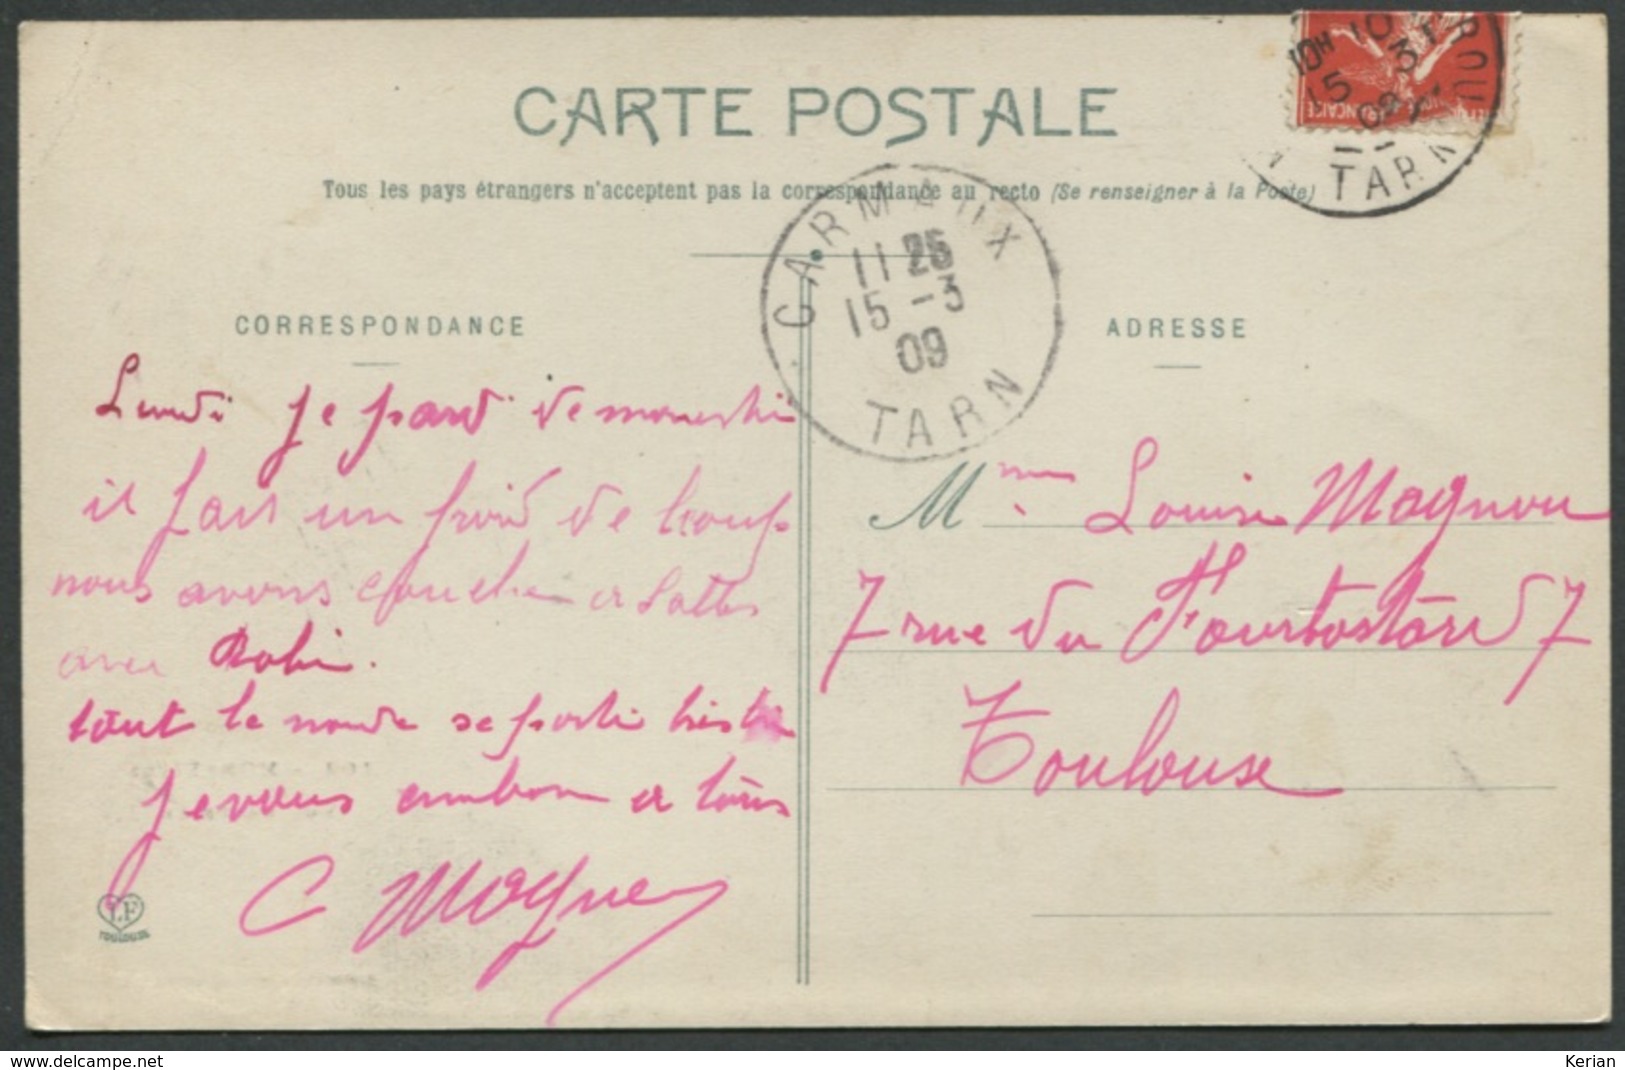 CARTE POSTALE
Tous les pays étrangers n'acceptent pas la correspondance au recto (Se renseigner à la Poste)
10H 10
15 3
09
TARN
CARMAUX
11 25
15 -3
09
TARN
CORRESPONDANCE
ADRESSE
Lundi je pard de
il fait un froid de loup
nous avons coucher a Sattes
avec Robi.
tout le monde se porte
Je vous a tous
C Magne
Mme Louise Magnou
7 rue du Fourbastard 7
Toulouse
LF
TOULOUSE
www.delcampe.net
Kerian